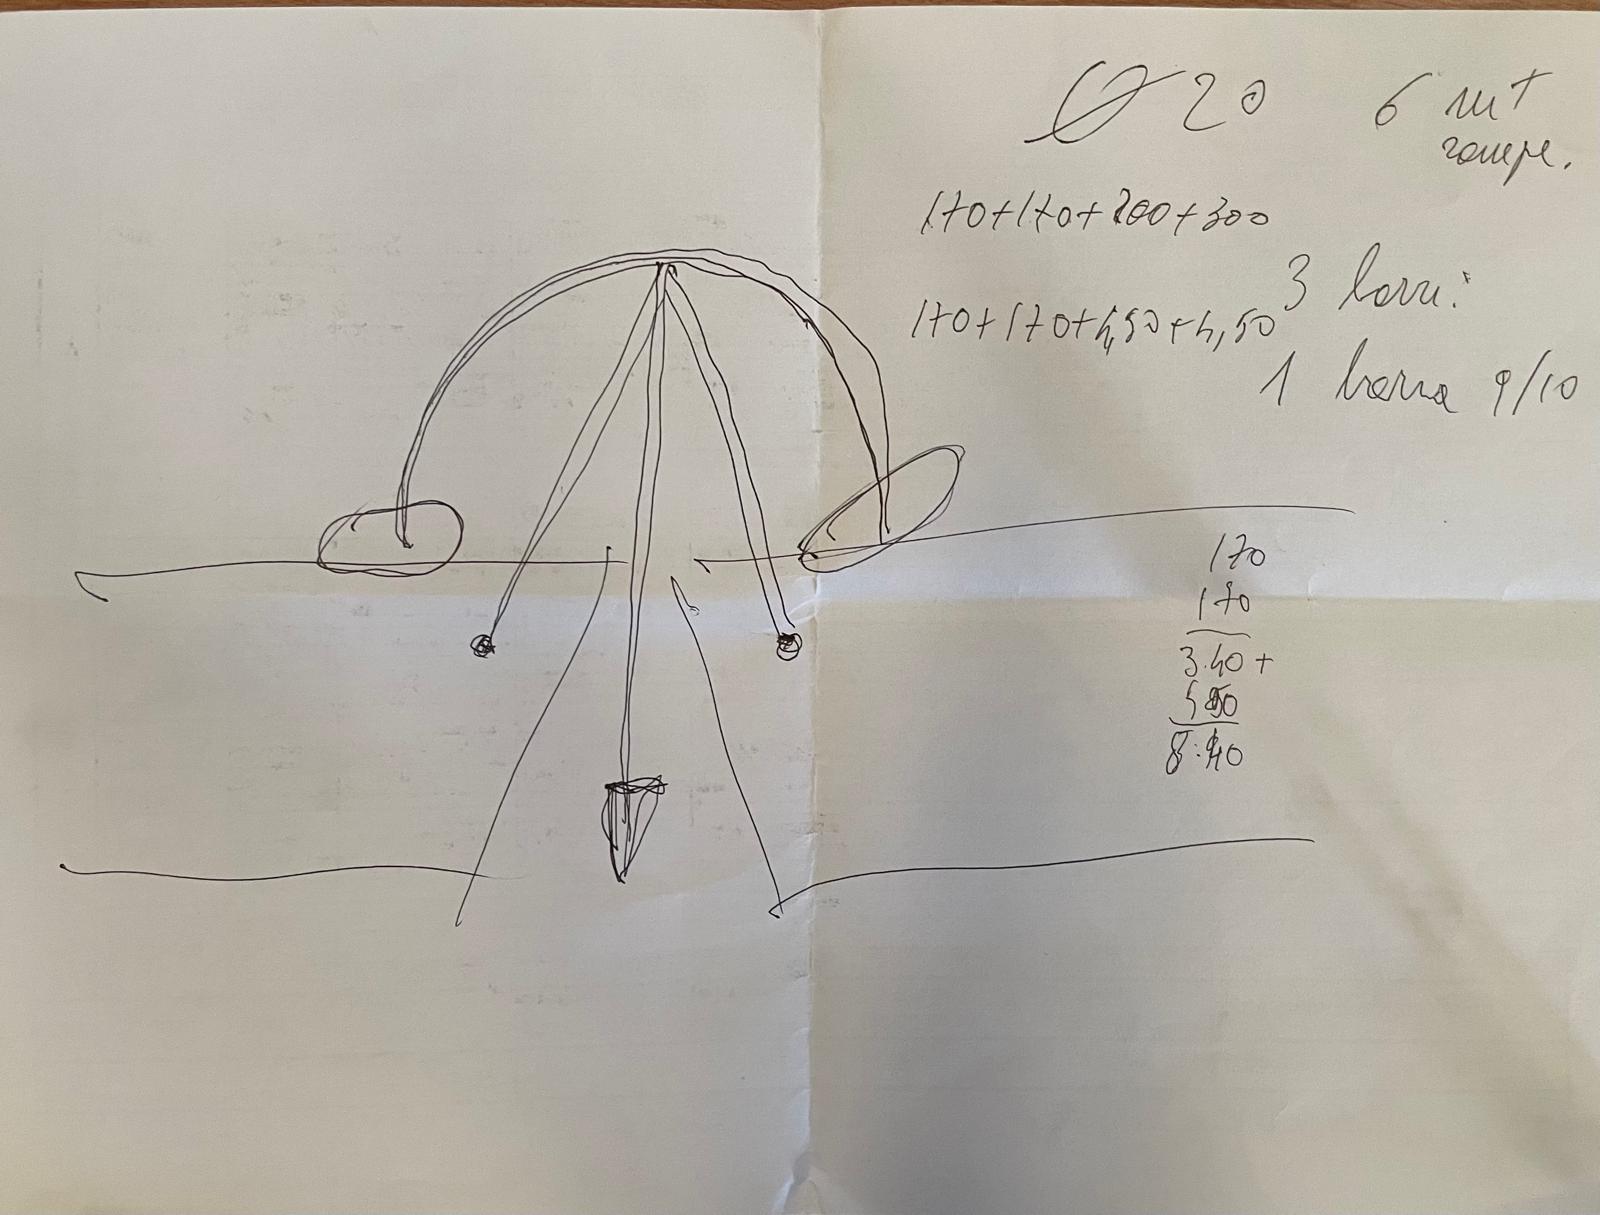 Ø 20 6 mt
170+170+200+300
3 barri:
170+170+4,50+4,50
1 barra 9/10
170
170
3.40+
8.40